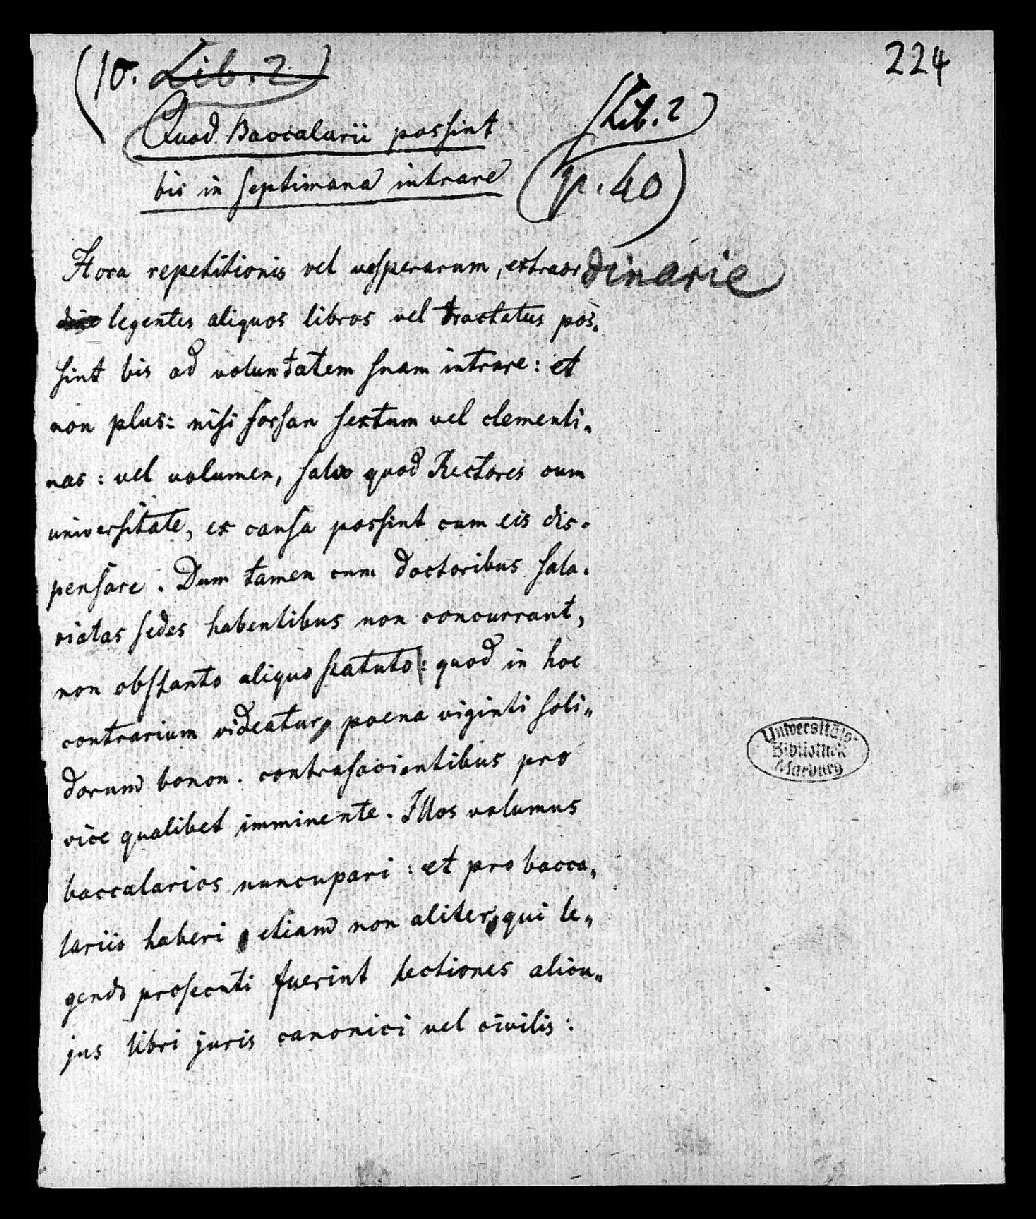 224
(10. Lib. 2.)
Quod Baccalarii possint
bis in septimana intrare
(Lib. 2)
(p. 40)
Hora repetitionis vel vesperarum, extraordinarie
legentes aliquos libros vel tractatus pos-
sint bis ad voluntatem suam intrare: et
non plus: nisi forsan sextum vel clementi-
nas: vel volumen, salvo quod Rectores cum
universitate, ex causa possint cum eis dis-
pensare. Dum tamen cum doctoribus sala-
riatas sedes habentibus non concurrant,
non obstanto aliquo statuto: quod in hoc
contrarium videatur, poena viginti soli-
dorum bonon. contrafacientibus pro
vice qualibet imminente. Illos volumus
baccalarios nuncupari: et pro bacca-
lariis haberi, etiam non aliter, qui le-
gendo prosecuti fuerint lectiones alicu-
jus libri juris canonici vel civilis:
Universitäts-
Bibliothek
Marburg